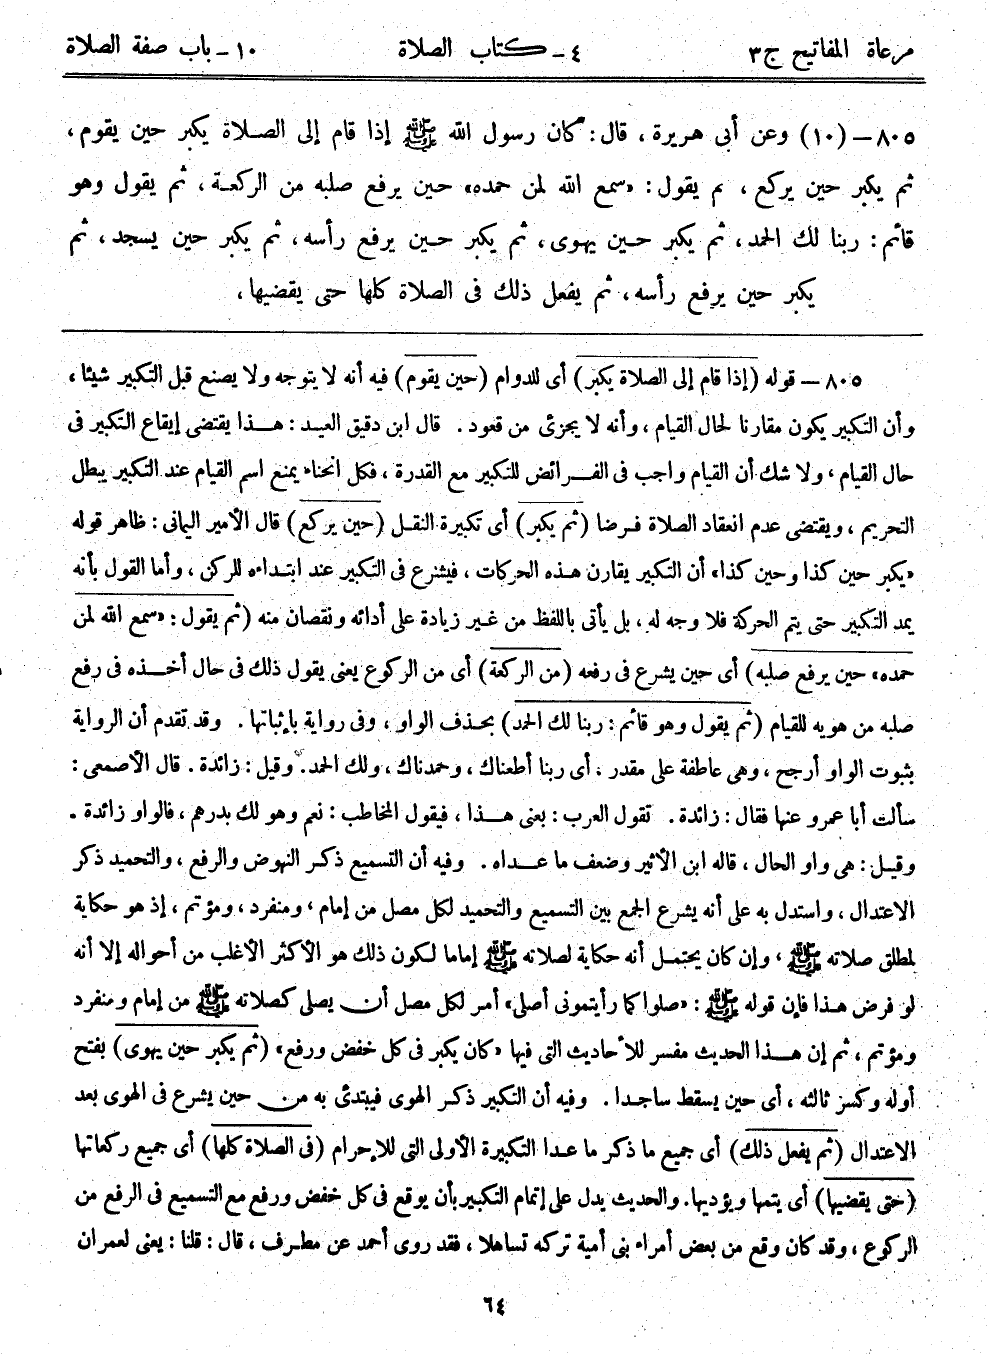 مرعاة المفاتيح ج٣ ٤ - كتاب الصلاة ١٠ - باب صفة الصلاة
٨٠٥ – (١٠) وعن أبى هريرة ، قال : كان رسول الله ﷺ إذا قام إلى الصلاة يكبر حين يقوم ،
ثم يكبر حين يركع ، ثم يقول : «سمع الله لمن حمده» حين يرفع صلبه من الركعة ، ثم يقول وهو
قائم : ربنا لك الحمد ، ثم يكبر حين يهوى ، ثم يكبر حين يرفع رأسه ، ثم يكبر حين يسجد ، ثم
يكبر حين يرفع رأسه ، ثم يفعل ذلك فى الصلاة كلها حتى يقضيها ،
٨٠٥ – قوله (إذا قام إلى الصلاة يكبر) أى للدوام (حين يقوم) فيه أنه لا يتوجه ولا يصنع قبل التكبير شيئا ،
وأن التكبير يكون مقارنا لحال القيام ، وأنه لا يجزئ من قعود . قال ابن دقيق العيد : هذا يقتضى إيقاع التكبير فى
حال القيام ، ولا شك أن القيام واجب فى الفرائض للتكبير مع القدرة ، فكل انحناء يمنع اسم القيام عند التكبير يبطل
التحريم ، ويقتضى عدم انعقاد الصلاة فرضا (ثم يكبر) أى تكبيرة النقل (حين يركع) قال الأمير اليمانى : ظاهر قوله
«يكبر حين كذا وحين كذا» أن التكبير يقارن هذه الحركات ، فيشرع فى التكبير عند ابتداءه للركن ، وأما القول بأنه
يمد التكبير حتى يتم الحركة فلا وجه له ، بل يأتى باللفظ من غير زيادة على أدائه ونقصان منه (ثم يقول : «سمع الله لمن
حمده» حين يرفع صلبه) أى حين يشرع فى رفعه (من الركعة) أى من الركوع يعنى يقول ذلك فى حال أخذه فى رفع
صلبه من هويه للقيام (ثم يقول وهو قائم : ربنا لك الحمد) بحذف الواو ، وفى رواية بإثباتها . وقد تقدم أن الرواية
بثبوت الواو أرجح ، وهى عاطفة على مقدر ، أى ربنا أطعناك ، وحمدناك ، ولك الحمد . وقيل : زائدة . قال الأصمعى :
سألت أبا عمرو عنها فقال : زائدة . تقول العرب : بعنى هذا ، فيقول المخاطب : نعم وهو لك بدرهم ، فالواو زائدة .
وقيل : هى واو الحال ، قاله ابن الأثير وضعف ما عداه . وفيه أن التسميع ذكر النهوض والرفع ، والتحميد ذكر
الاعتدال ، واستدل به على أنه يشرع الجمع بين التسميع والتحميد لكل مصل من إمام ، ومنفرد ، ومؤتم ، إذ هو حكاية
لمطلق صلاته ﷺ ، وإن كان يحتمل أنه حكاية لصلاته ﷺ إماما لكون ذلك هو الأكثر الأغلب من أحواله إلا أنه
لو فرض هذا فإن قوله ﷺ : «صلوا كما رأيتمونى أصلى» أمر لكل مصل أن يصلى كصلاته ﷺ من إمام ومنفرد
ومؤتم ، ثم إن هذا الحديث مفسر للأحاديث التى فيها «كان يكبر فى كل خفض ورفع» (ثم يكبر حين يهوى) بفتح
أوله وكسر ثالثه ، أى حين يسقط ساجدا . وفيه أن التكبير ذكر الهوى فيبتدئ به من حين يشرع فى الهوى بعد
الاعتدال (ثم يفعل ذلك) أى جميع ما ذكر ما عدا التكبيرة الأولى التى للإحرام (فى الصلاة كلها) أى جميع ركعاتها
(حتى يقضيها) أى يتمها ويؤديها . والحديث يدل على إتمام التكبير بأن يوقع فى كل خفض ورفع مع التسميع فى الرفع من
الركوع ، وقد كان وقع من بعض أمراء بنى أمية تركه تساهلا ، فقد روى أحمد عن مطرف ، قال : قلنا : يعنى لعمران
٦٤